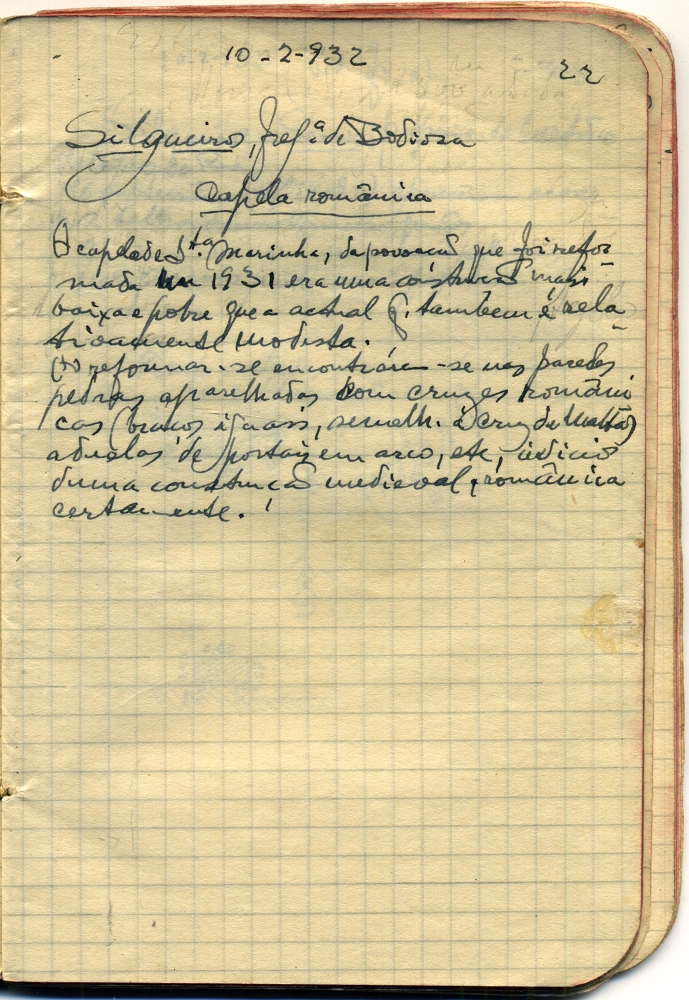 10-2-932
22
Silgueiros, freg.ª de Bodiosa
Capela românica
A capela de S.ta Marinha, da povoação que foi refor-
mada em 1931 era uma construcção mais
baixa e pobre que a actual q. tambem é rela-
tivamente modesta.
Ao reformar-se encontráram-se nas paredes
pedras aparelhadas com cruzes români
cas (braços iguais, semelh. á Cruz de Malta)
aduelas de portais em arco, etc, indicio
duma construcção medieval, românica
certamente.